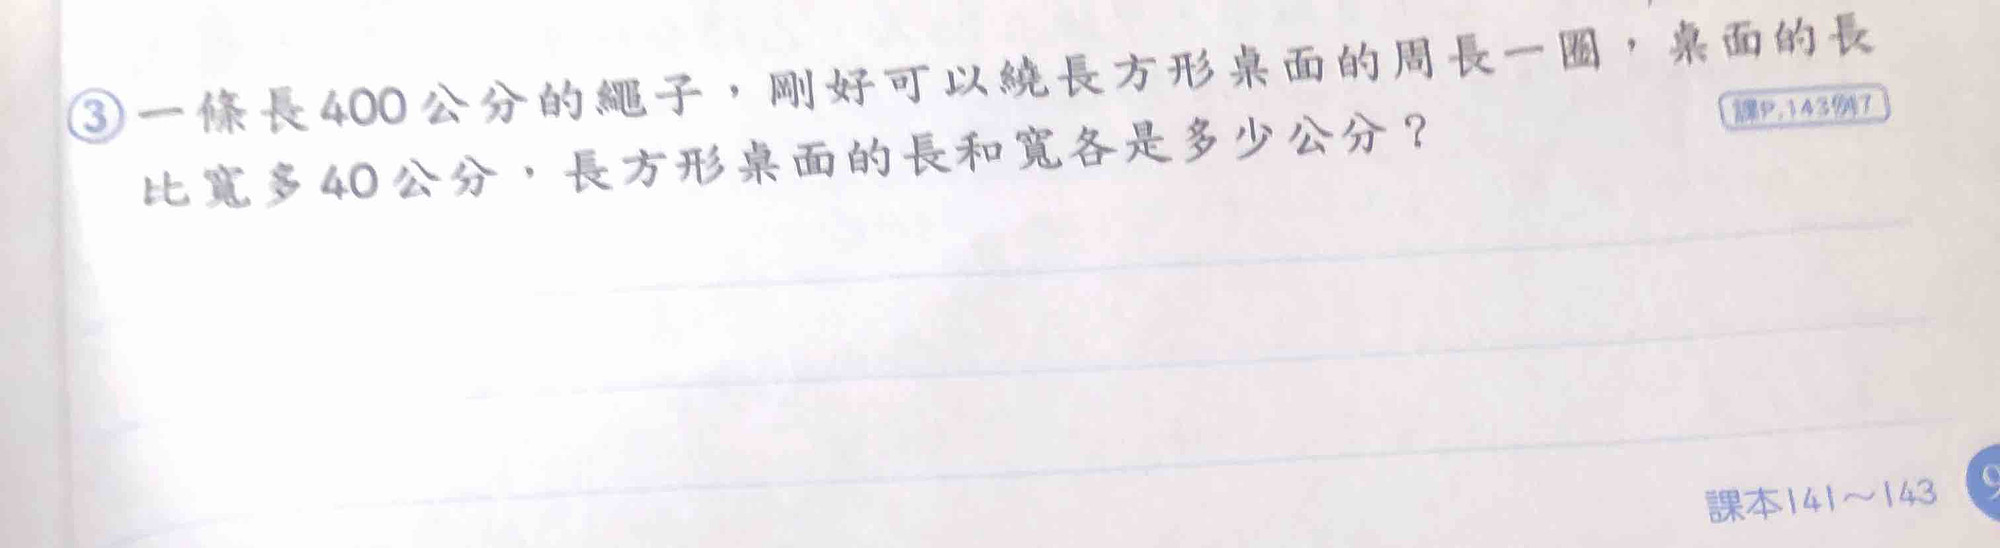 ③一條長400公分的繩子，剛好可以繞長方形桌面的周長一圈，桌面的長
比寬多40公分，長方形桌面的長和寬各是多少公分？
課P.143例7
課本141～143
9